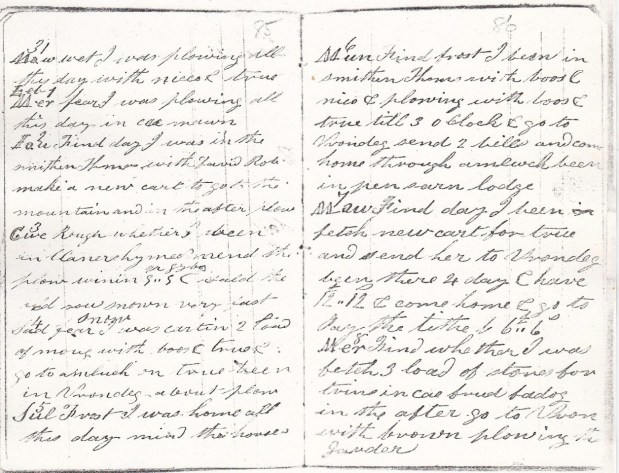 85
31
Maw wet I was plowing all
this day with nico & true
Feb 1
Mer fear I was plowing all
this day in cae mawn
2
Iau Kind day I was in the
smithen Thomas with David Rob
make a new cart to go to the
mountain and in the after plow
3
Gwe Rough whether I been
in Llanerchymed mend the
plow winin 5"5 & wald the
very last
4 snow
Sad fear I was cartin 2 load
of moug with boos & true &
go to amluch on true been
in Vrondeg about plow
5
Sul Frost I was home all
this day mind the house
86
6
Mun Kind frost I been in
smithen Thomas with boos &
nico & plowing with boos &
true till 3 o clock & go to
Vrondeg send 2 bills and com
home through amlwch been
in pen sarn lodge
7
Maw Kind day I been
fetch new cart for true
and send her to Vrondeg
been there 4 day & have
12"12 & come home & go to
Pay the tithe 6"6
8
Mer Kind whether I was
fetch 3 load of stones for
twins in cae brud badog
in the after go to Vron
with brown plowing th
gander